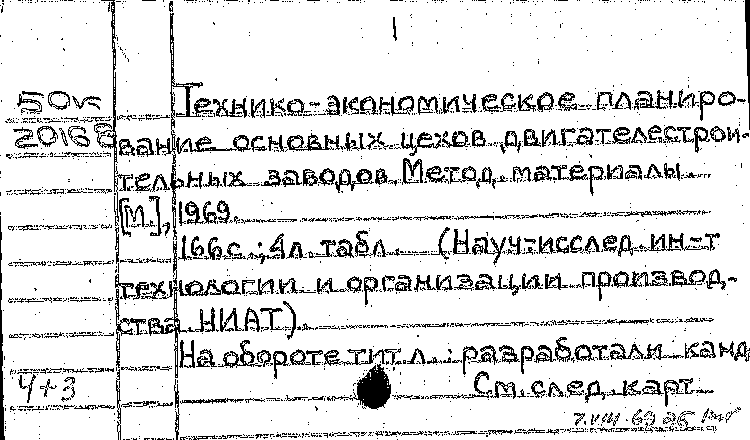 1
50к Технико-экономическое планиро-
20168 вание основных цехов двигателестрои-
тельных заводов Метод. материалы.
[М.], 1969.
166с.; 4л. табл. (Науч-исслед. ин-т
технологии и организации производ-
ства НИАТ).
На обороте тит. л.: разработали канд
4+3 См. след. карт.
7.VIII.69